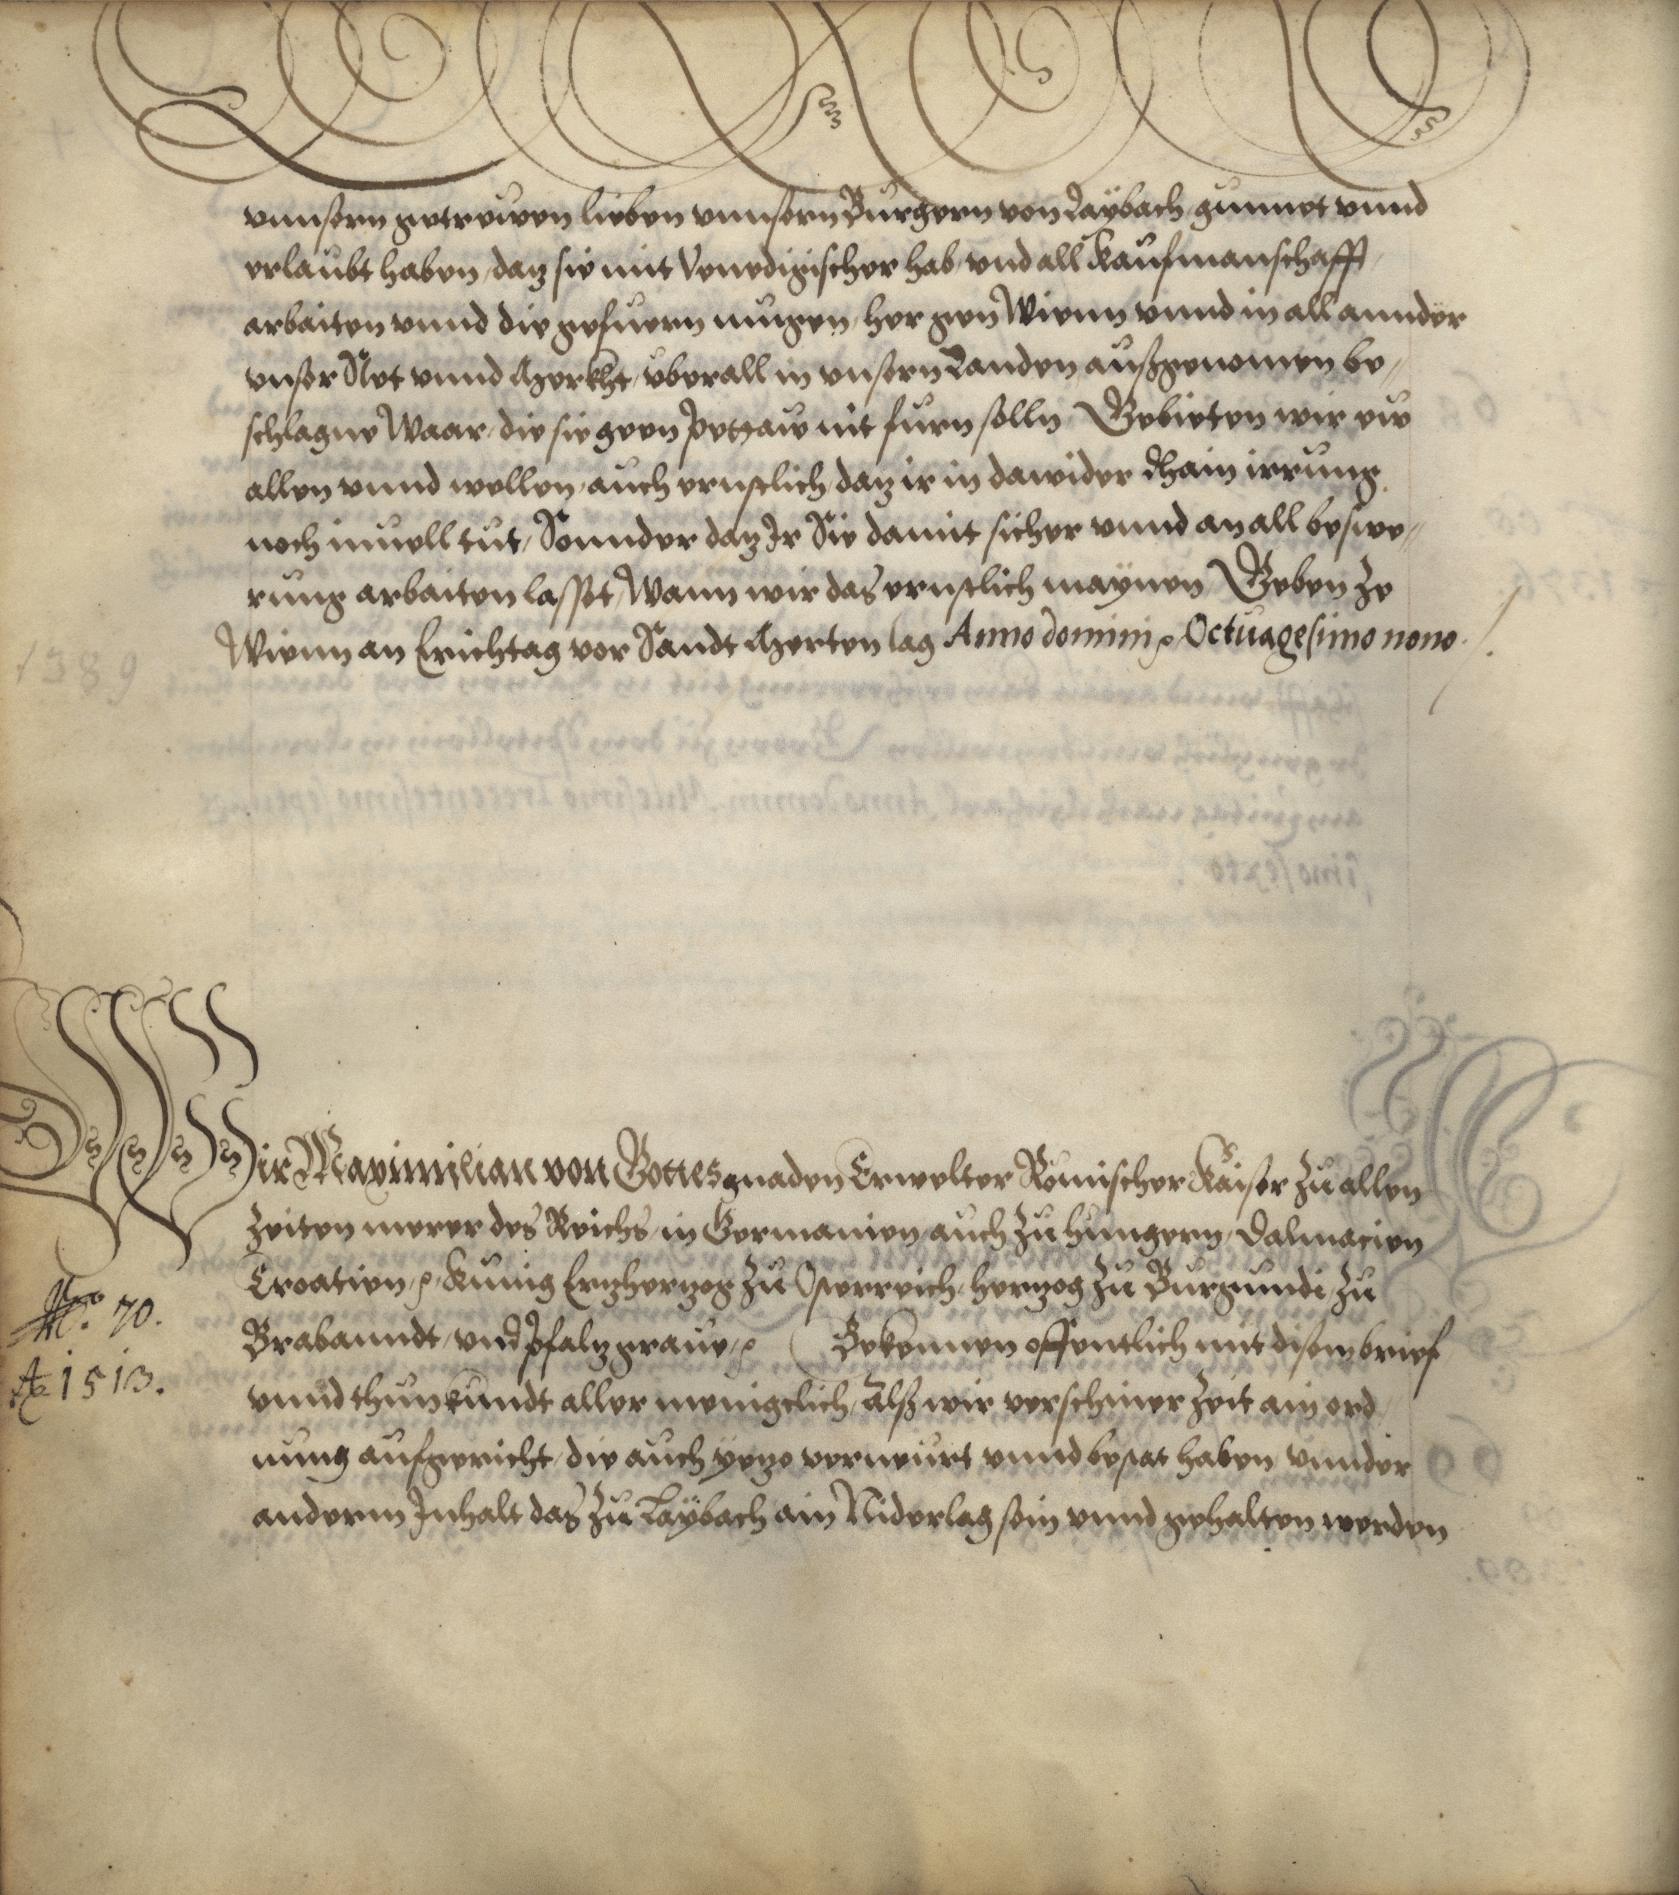 vnnsern getrewen lieben vnnsern Burgern von Laÿbach gunnet vnnd
erlaubt haben, daz sie mit Venedigischer hab, vnd all Kaufmanschafft,
arbaiten vnnd die gefuern mugen, her gen Wienn vnnd in all annder
vnser Stet vnnd Merkht, vberall in vnsern Landen außgenomen be-
schlagne Waar, die sie geen Pettaw nit furn solln Gebieten wir ew
allen vnnd wellen, auch ernstlich, daz ir in dawider khain irrung
noch inuell tut, Sonnder daz Ir Sie damit sicher vnnd an all beswe-
rung arbaiten lasset, Wann wir das ernstlich maynen Geben ze
Wienn an Erichtag vor Sandt Merten tag Anno domini Octuagesimo nono.
1389
Wir Maximilian von Gottes gnaden Erwelter Römischer Kaiser zu allen
Zeiten merer des Reichs, in Germanien, auch zu Hungern, Dalmacien
Croatien, Kunig Ertzhertzog zu Osterreich, Hertzog zu Burgundi, zu
No. 70.
Brabanndt, vnd Pfaltzgraue, Bekennen offentlich mit disem brief
Ao 1513.
vnnd thun kundt aller menigclich, Alß wir verschiner Zeit ain ord
nung aufgericht, die auch yetzo vernewrt vnnd bestat haben vnnder
anderm Inhalt das zu Laÿbach ain Niderlag sein vnnd gehalten werden